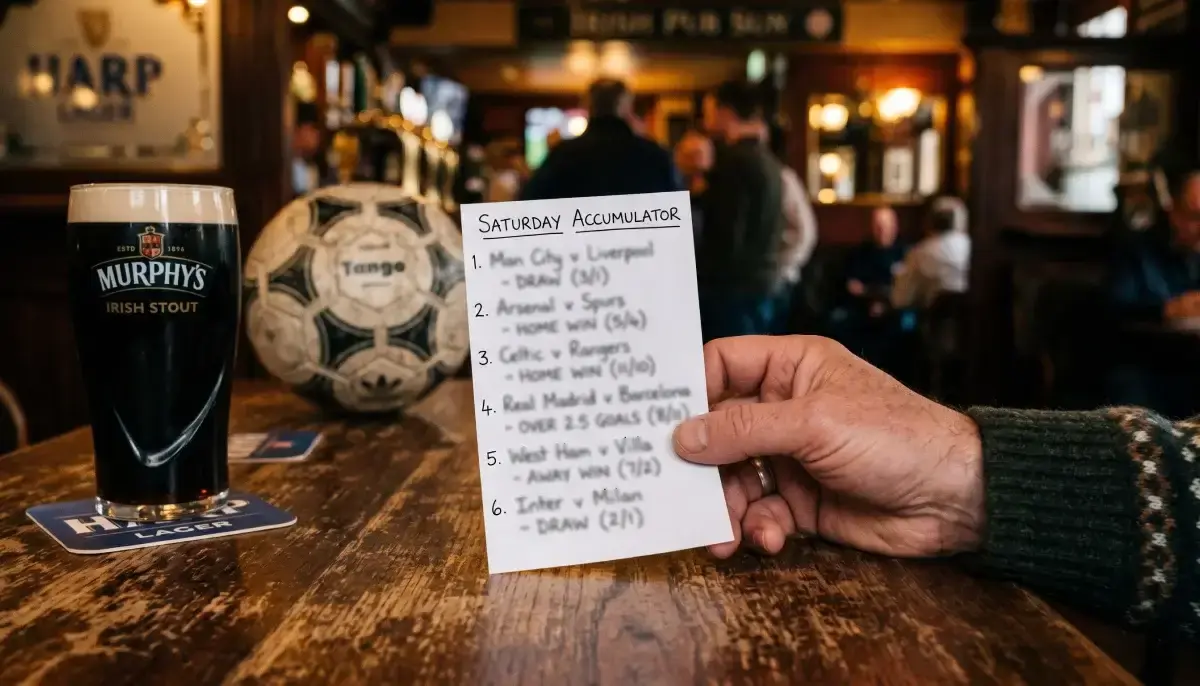 HARP
LAGER
IRISH PUB
ESTD 1896
MURPHY'S
IRISH STOUT
Tango
LAGER
SATURDAY ACCUMULATOR
1. Man City v Liverpool
- DRAW (3/1)
2. Arsenal v Spurs
- HOME WIN (5/4)
3. Celtic v Rangers
- HOME WIN (11/10)
4. Real Madrid v Barcelona
- OVER 2.5 GOALS
5. West Ham v Villa
- AWAY WIN (7/2)
6. Inter v Milan
- DRAW (2/1)